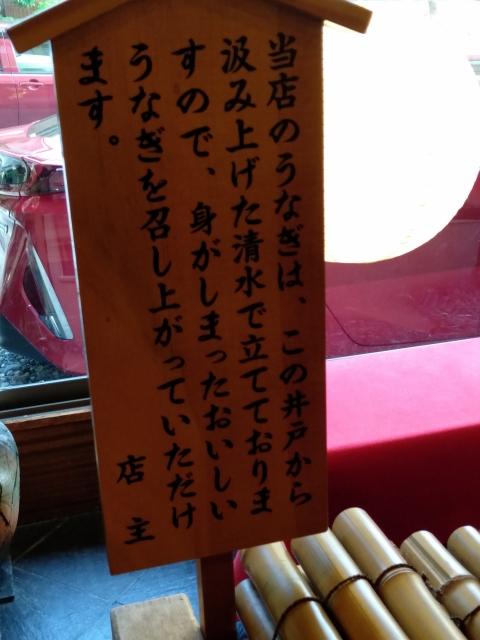 当店のうなぎは、この井戸から
汲み上げた清水で立てておりま
すので、身がしまったおいしい
うなぎを召し上がっていただけ
ます。
店主